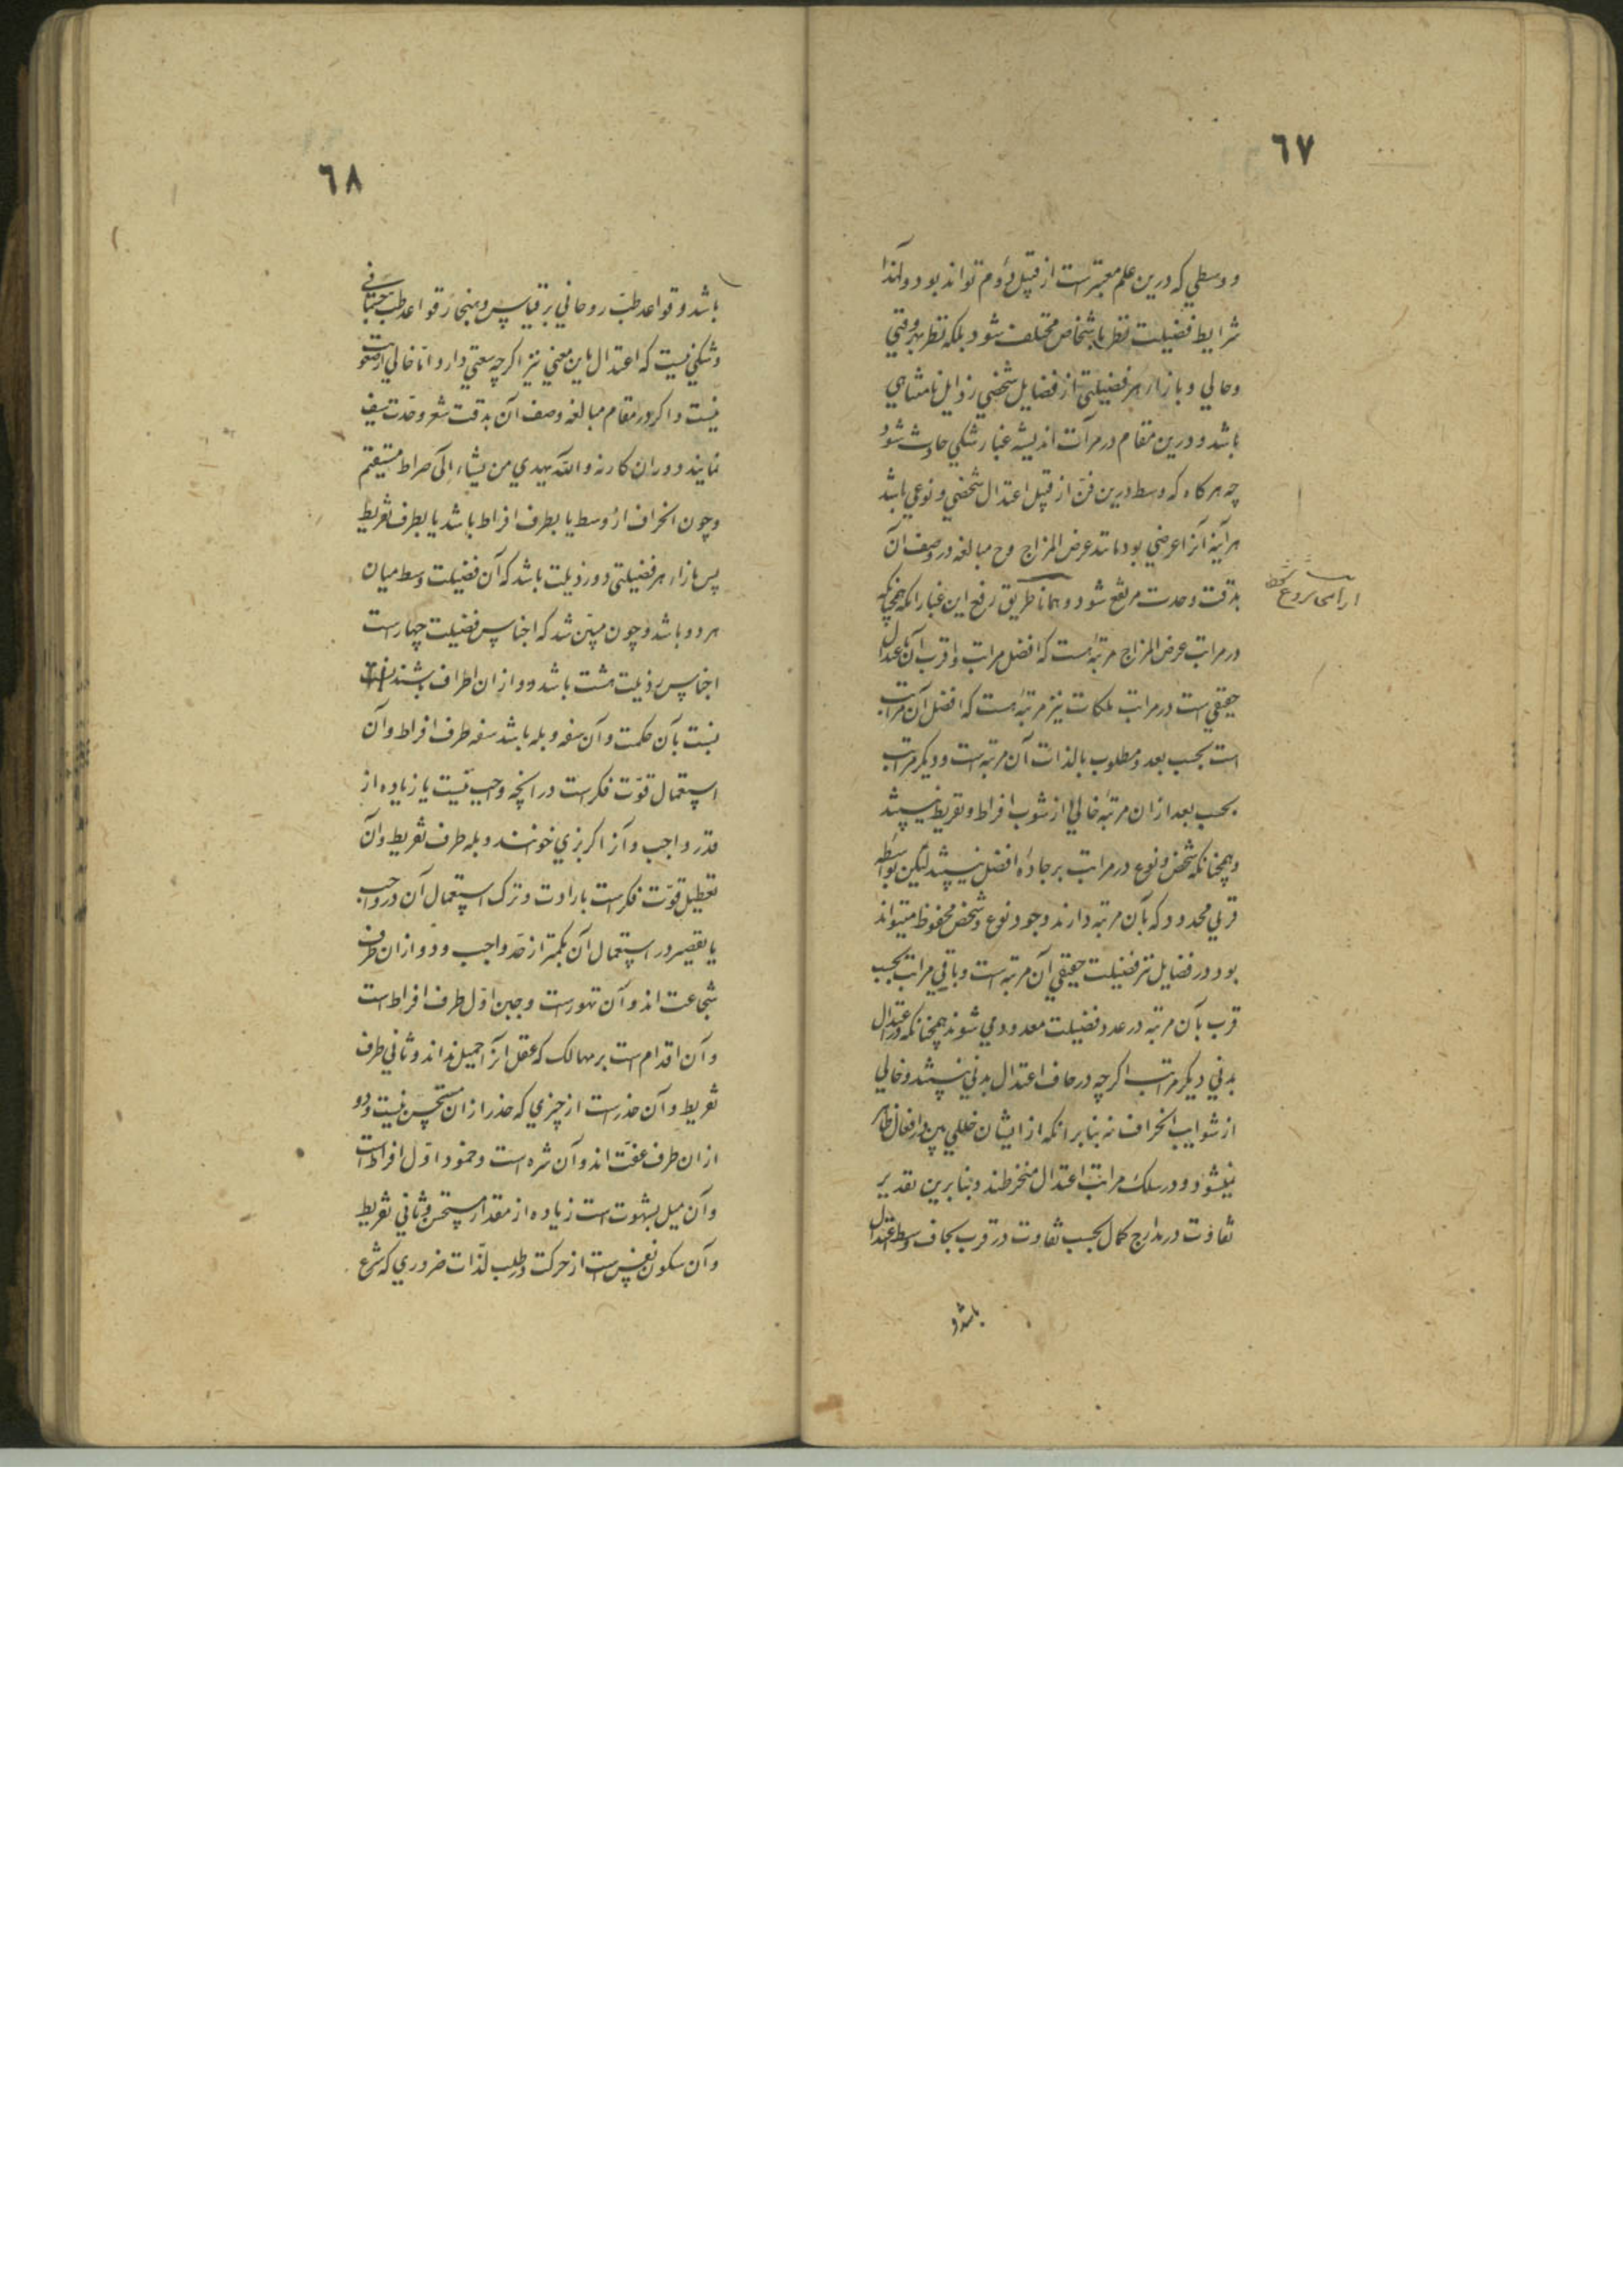 ٦٧
و وسطي که درین علم معتبر است از قبیل دوم تواند بود و لهذا
شرایط فضیلت نظر باشخاص مختلف شود بلکه نظر بهر وقتي
و حالي و بازاء هر فضیلتي از فضایل شخصي رذایل نامتناهي
باشد و درین مقام در مرآت اندیشه غبار شکي حادث شود
چه هرکاه که وسط درین فن از قبیل اعتدال شخصي و نوعي باشد
هر آینه آنرا عرضي بود مانند عرض المزاج و ح مبالغه در وصف آن
بدقت و حدت مرتفع شود و همانا طریق رفع این غبار آنکه همچنانکه
در مراتب عرض المزاج مرتبهٔ هست که افضل مراتب و اقرب آن باعتدال
حقیقي است در مراتب ملکات نیز مرتبهٔ هست که افضل آن مراتب
است بحسب بعد و مطلوب بالذات آن مرتبه است و دیکر مراتب
بحسب بعد ازان مرتبهٔ خالي از شوب افراط و تفریط نیستند
و همچنانکه شخص و نوع در مراتب بر جادهٔ افضل نیستند لیکن بواسطهٔ
قربي محدود که بآن مرتبه دارند وجود نوع و شخص محفوظ میتواند
بود در فضایل نیز فضیلت حقیقي آن مرتبه است و باقي مراتب بحسب
قرب بآن مرتبه در عدد فضیلت معدود مي شوند همچنانکه در اعتدال
بدني دیکر مراتب اکرچه در حاف اعتدال بدني نیستند و خالي
از شوایب انحراف نه بنابر آنکه از ایشان خللي بین در افعال ظاهر
نمیشود در سلک مراتب اعتدال منخرطند و بنابرین تقدیر
تفاوت در مدارج کمال بحسب تفاوت در قرب بحاف وسط اعتدال
باشد و
٦٨
باشد و قواعد طب روحاني بر قیاس و هنجار قواعد طب جسماني
و شکي نیست که اعتدال باین معني نیز اکرچه سعتي دارد اما خالي از صعوبت
نیست و اکر در مقام مبالغه وصف آن بدقت شعر و حدت سیف
نمایند دور ازان کار نه و الله یهدي من یشاء الی صراط مستقیم
و چون انحراف از وسط یا بطرف افراط باشد یا بطرف تفریط
پس بازاء هر فضیلتي دو رذیلت باشد که آن فضیلت وسط میان
هر دو باشد و چون مبین شد که اجناس فضیلت چهار است
اجناس رذیلت هشت باشد دو ازان اطراف باشند
نسبت بآن حکمت و آن سفه و بله باشد سفه طرف افراط و آن
استعمال قوت فکر است در انچه واجب نیست یا زیاده از
قدر واجب و آنرا کربزي خوانند و بله طرف تفریط و آن
تعطیل قوت فکر است بارادت و ترک استعمال آن در واجب
یا تقصیر در استعمال آن بکمتر از حد واجب و دو ازان طرف
شجاعت اند و آن تهور است و جبن اول طرف افراط است
و آن اقدام است بر مهالک که عقل انرا جمیل نداند و ثاني طرف
تفریط و آن حذر است از چیزي که حذر ازان مستحسن نیست و دو
ازان طرف عفت اند و آن شره است و خمود اول افراط است
و آن میل بشهوت است زیاده از مقدار مستحسن و ثاني تفریط
و آن سکون نفس است از حرکت در طلب لذات ضروري که شرع